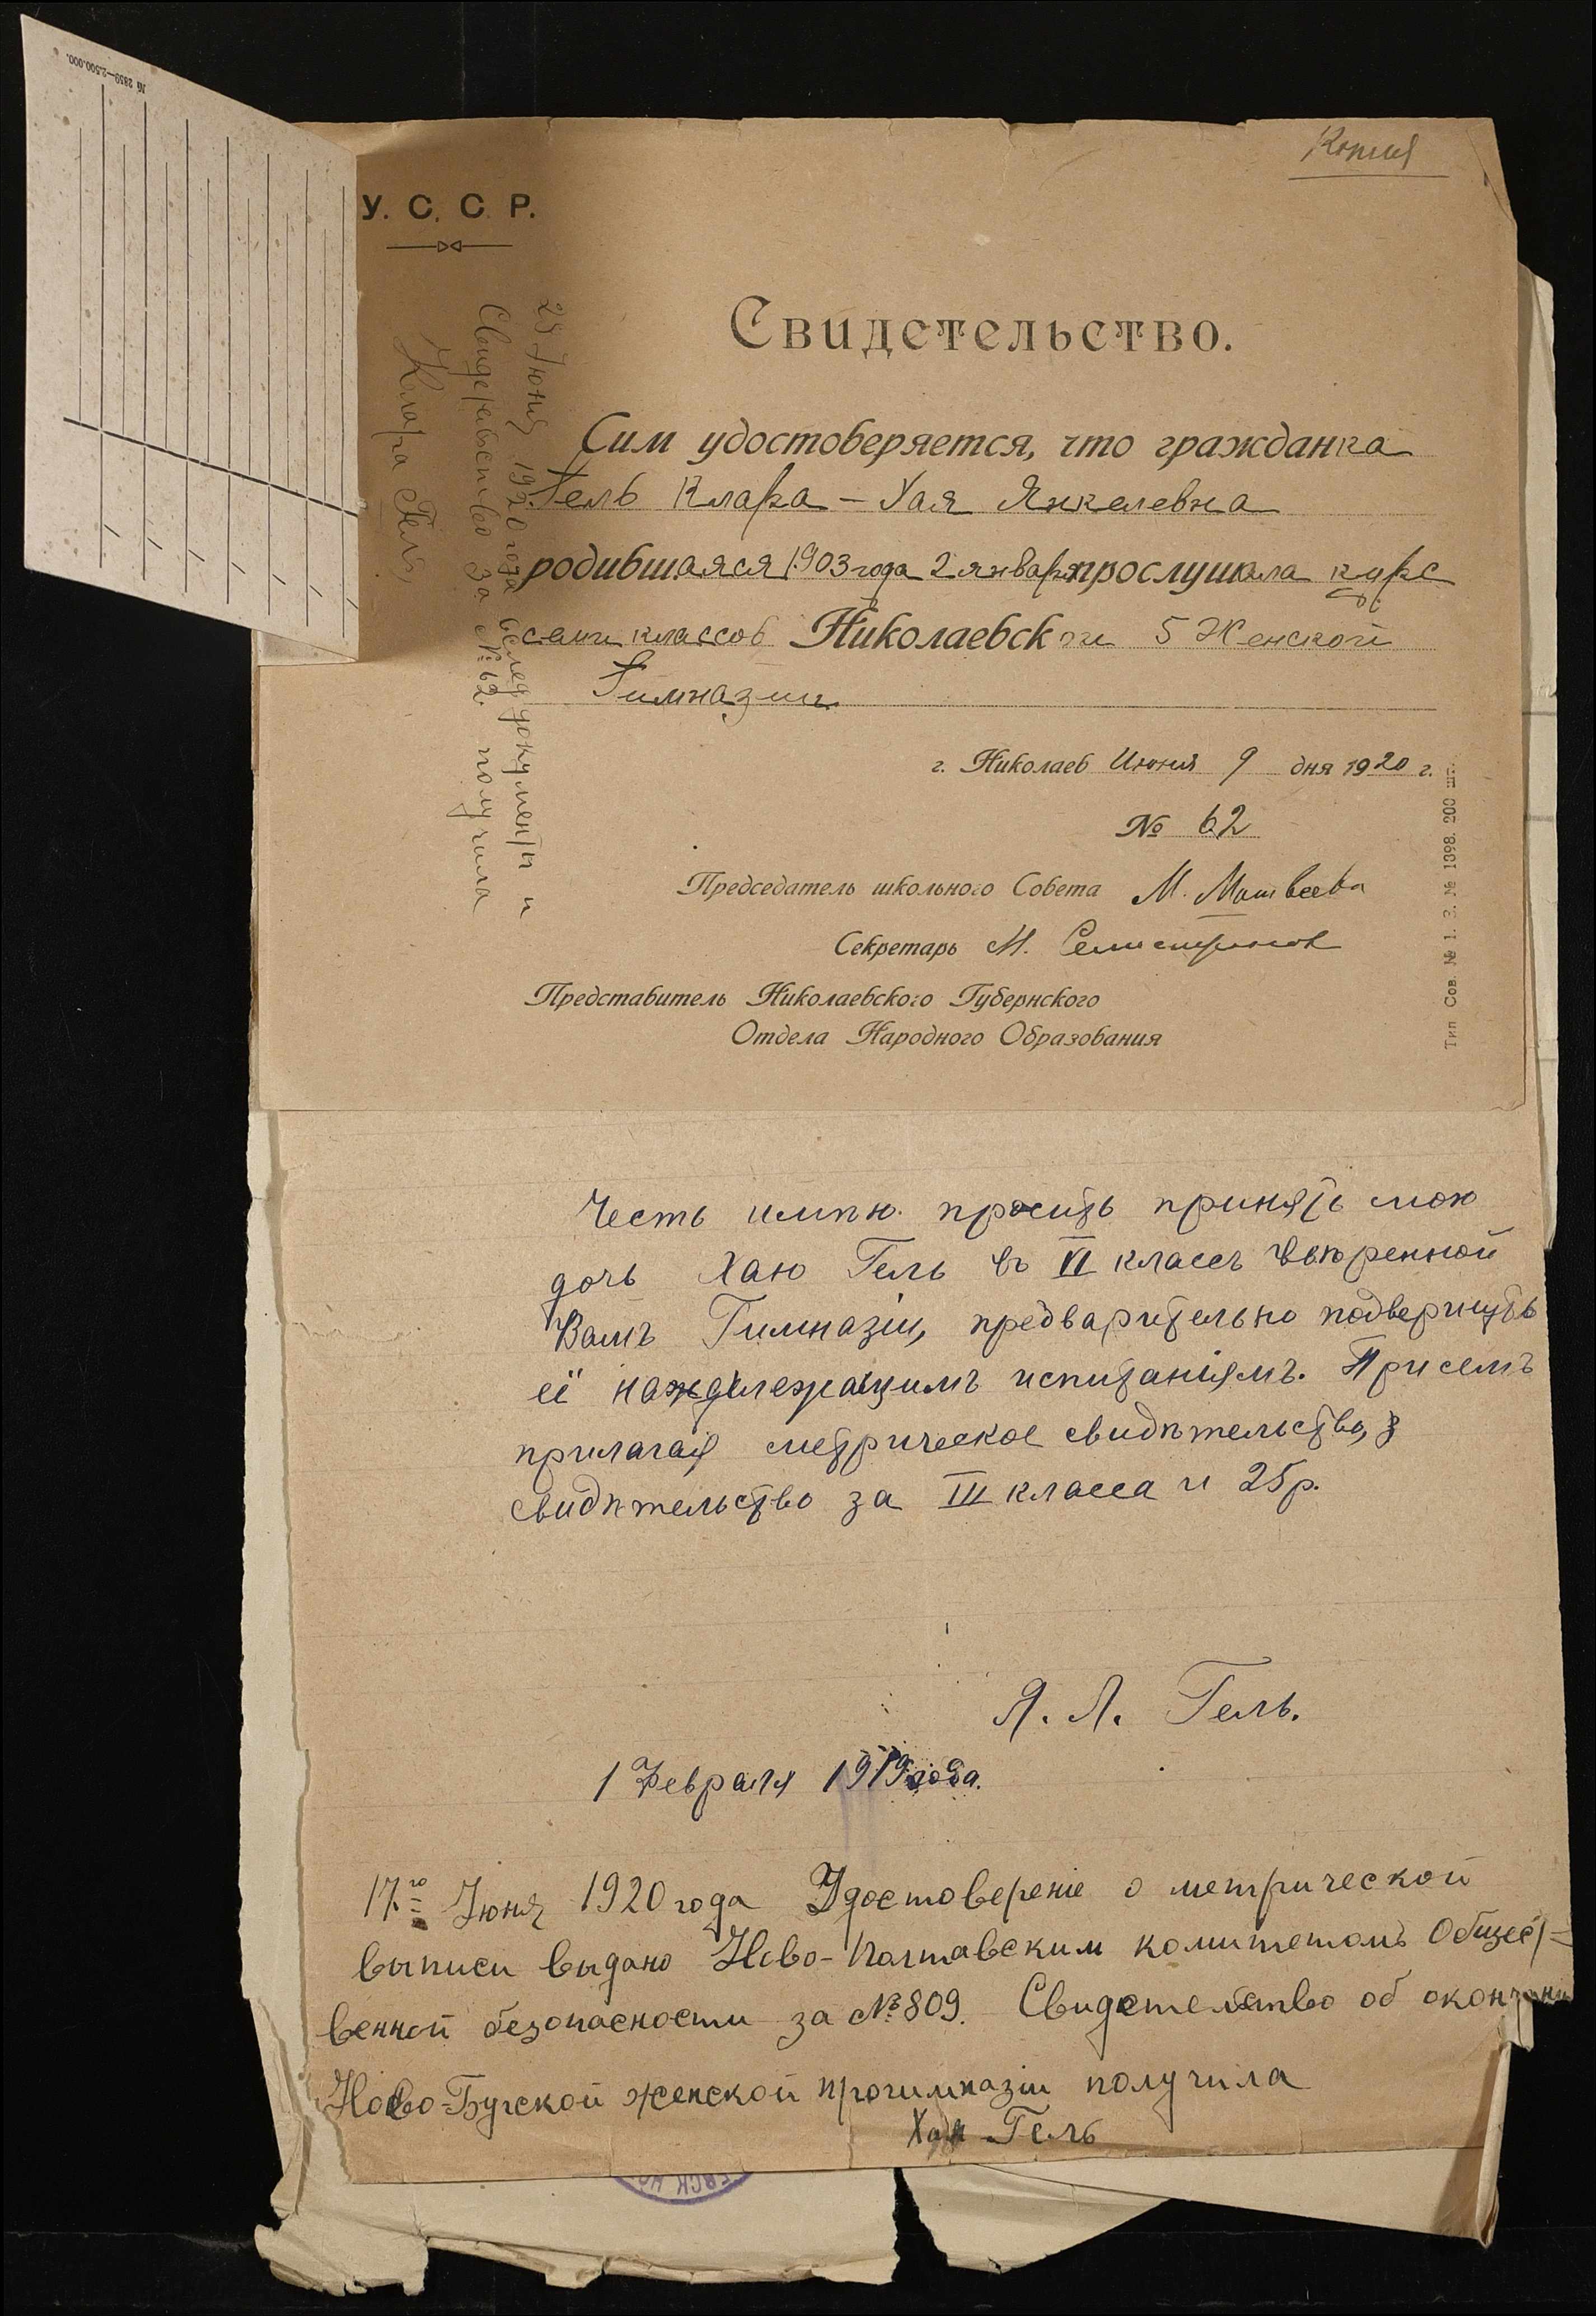 № 2859—2.500.000.
Копия
У. С. С. Р.
Свидетельство.
Сим удостоверяется, что гражданка
Гель Клара – Хая Янкелевна
родившаяся 1903 года 2 января прослушала курс
семи классов Николаевской 5 Женской
Гимназии
г. Николаев Июня 9 дня 1920 г.
№ 62
Председатель школьного Совета М. Матвеева
Секретарь М.
Представитель Николаевского Губернского
Отдела Народного Образования
Тип. Сов. № 1. З. № 1398. 200 шт.
Июня 1920 года все документы и
Свидетельство за № 62 получила
Клара Гель
Честь имѣю просить принять мою
дочь Хаю Гель въ VI классъ ввѣренной
Вамъ Гимназіи, предварительно подвергнуть
её надлежащимъ испытаніямъ. При семъ
прилагая метрическое свидѣтельство,
свидѣтельство за III класса и 25 р.
Я. Л. Гель.
1 Февраля 1919 года.
17го Июня 1920 года Удостоверенie о метрической
выписи выдано Ново-Полтавским комитетомъ Общест=
венной безопасности за № 809. Свидетельство об окончани
Ново-Бугской женской прогимназіи получила
Хая Гель